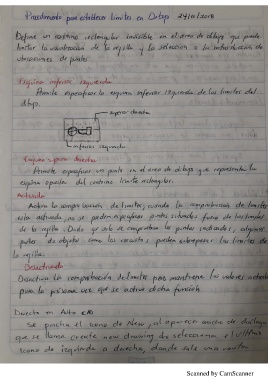 Procedimiento para establecer límites en Dibujo 24/10/2018
Define un contorno rectangular invisible en el area de dibujo que puede
limitar la visualización de la rejilla y la selección o la introducción de
ubicaciones de puntos.
Esquina inferior izquierda
Permite especificar la esquina inferior izquierda de los limites del
dibujo.
superior derecha
inferior izquierda
Esquina superior derecha
Permite especificar un punto en el area de dibujo que representa la
esquina opuesta del contorno límite rectangular.
Activado
Activa la comprobación de limites, cuando la comprobación de limites
esta activada, no se pueden especificar puntos situados fuera de los limites
de la rejilla. Dado que solo se comprueban los puntos indicados, algunas
partes de objetos como los circulos, pueden sobrepasar los limites de
la rejilla.
Desactivado
Desactiva la comprobación de limites pero mantiene los valores actuales
para la próxima vez que se active dicha función
Directo en Auto CAD
Se pincha el icono de New, al aparece cuadro de dialogo
que se llama create new drawing se selecciona el ultimo
icono de izquierda a derecha, donde sale una
Scanned by CamScanner